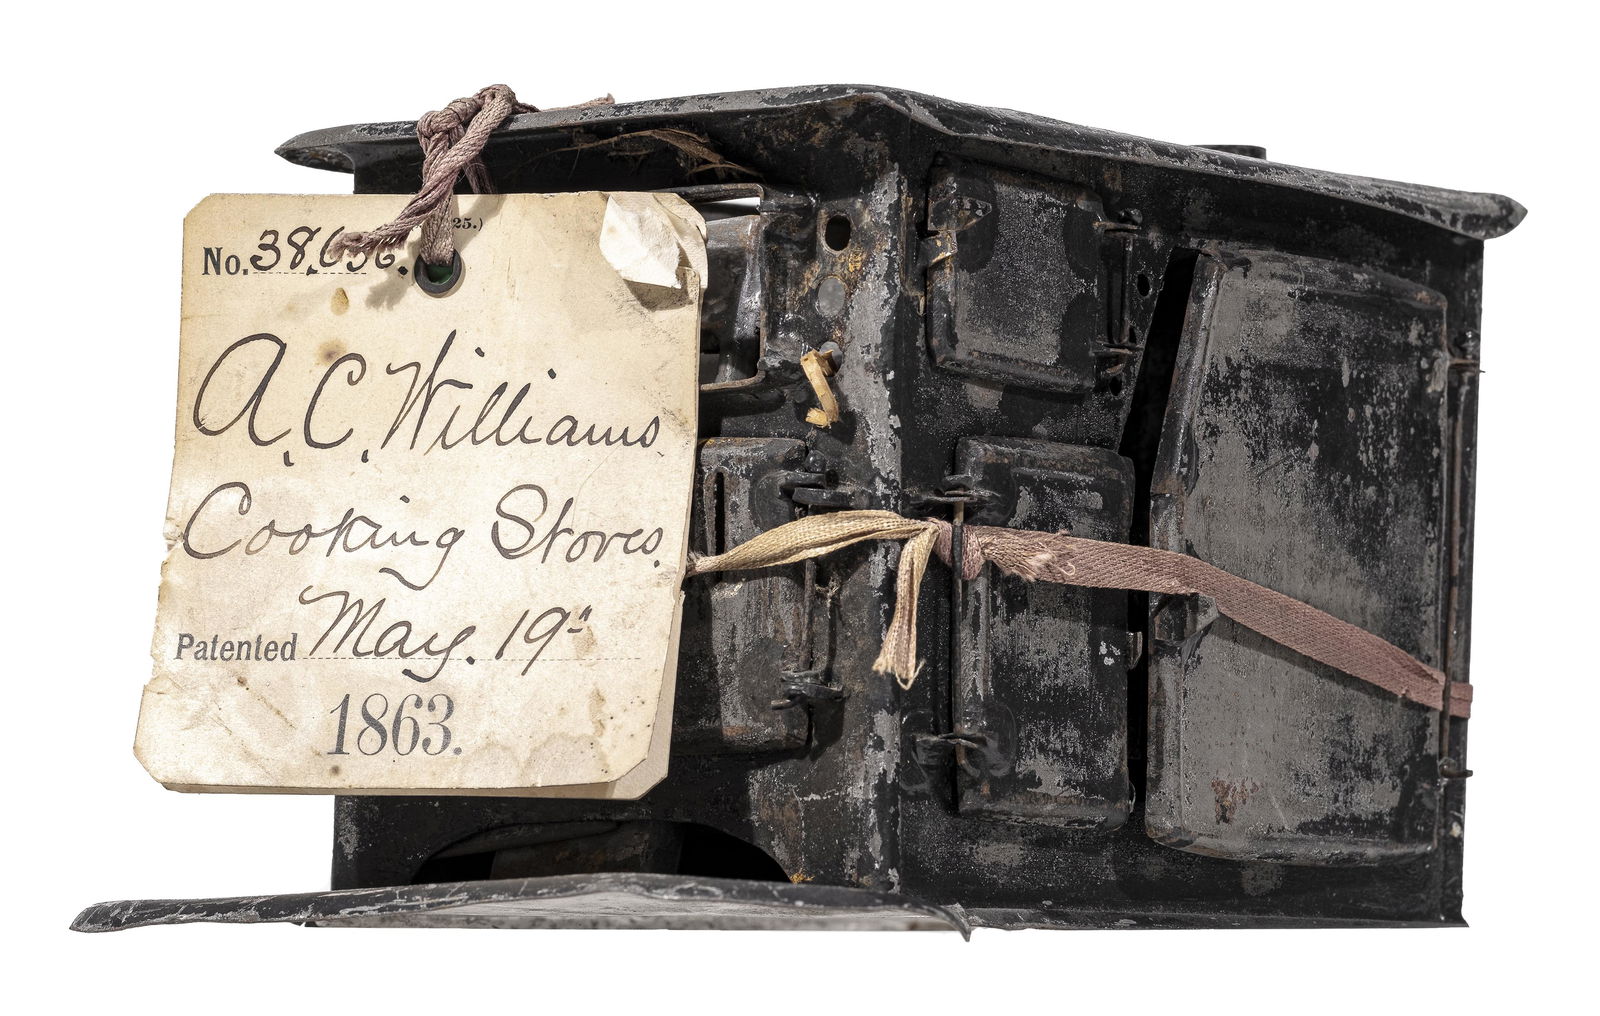 25.)
No. 38,636.
A. C. Williams
Cooking Stoves.
Patented May. 19"
1863.